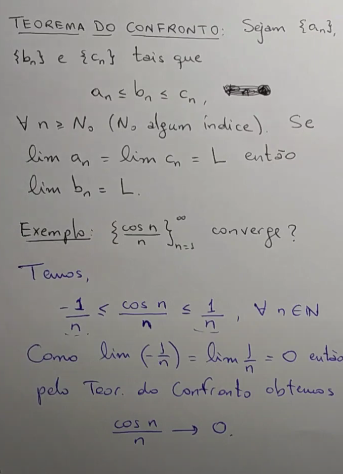 TEOREMA DO CONFRONTO: Sejam {aₙ},
{bₙ} e {cₙ} tais que
aₙ ≤ bₙ ≤ cₙ,
∀ n ≥ N₀ (N₀ algum índice). Se
lim aₙ = lim cₙ = L então
lim bₙ = L.
Exemplo: {cos n / n}ₙ₌₁^∞ converge?
Temos,
-1/n ≤ cos n / n ≤ 1/n, ∀ n ∈ ℕ
Como lim (-1/n) = lim 1/n = 0 então
pelo Teor. do Confronto obtemos
cos n / n → 0.